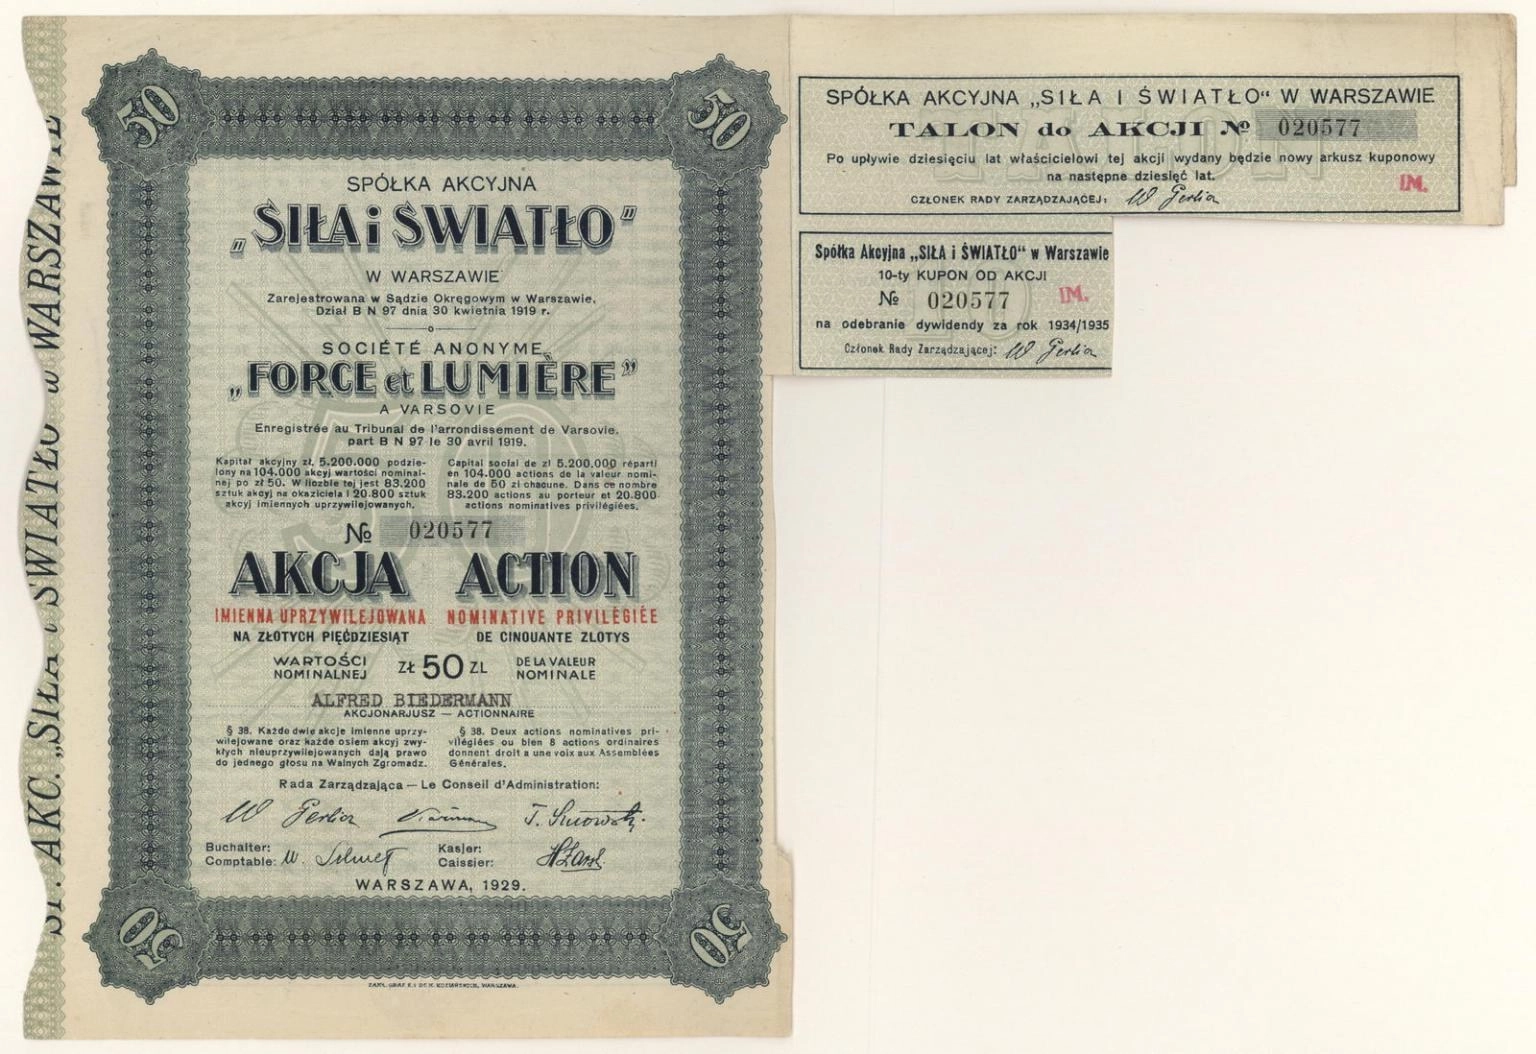 SP. AKC. „SIŁA i ŚWIATŁO w WARSZAWIE
50
50
SPÓŁKA AKCYJNA
„SIŁA i ŚWIATŁO”
W WARSZAWIE
Zarejestrowana w Sądzie Okręgowym w Warszawie,
Dział B N 97 dnia 30 kwietnia 1919 r.
SOCIÉTÉ ANONYME
„FORCE et LUMIÈRE”
A VARSOVIE
Enregistrée au Tribunal de l'arrondissement de Varsovie,
part B N 97 le 30 avril 1919.
Kapitał akcyjny zł. 5.200.000 podzie-
lony na 104.000 akcyj wartości nominal-
nej po zł 50. W liczbie tej jest 83.200
sztuk akcyj na okaziciela i 20.800 sztuk
akcyj imiennych uprzywilejowanych.
Capital social de zl 5.200.000 réparti
en 104.000 actions de la valeur nomi-
nale de 50 zl chacune. Dans ce nombre
83.200 actions au porteur et 20.800
actions nominatives privilégiées.
№ 020577
AKCJA ACTION
IMIENNA UPRZYWILEJOWANA NOMINATIVE PRIVILÉGIÉE
NA ZŁOTYCH PIĘĆDZIESIĄT DE CINQUANTE ZLOTYS
WARTOŚCI NOMINALNEJ ZŁ 50 ZL DE LA VALEUR NOMINALE
ALFRED BIEDERMANN
AKCJONARJUSZ — ACTIONNAIRE
§ 38. Każde dwie akcje imienne uprzy-
wilejowane oraz każde osiem akcyj zwy-
kłych nieuprzywilejowanych dają prawo
do jednego głosu na Walnych Zgromadz.
§ 38. Deux actions nominatives pri-
vilégiées ou bien 8 actions ordinaires
donnent droit a une voix aux Assemblées
Générales.
Rada Zarządzająca — Le Conseil d'Administration:
Buchalter:
Comptable:
Kasjer:
Caissier:
WARSZAWA, 1929.
50
50
ZAKŁ. GRAF. E. i DR. K. KOZIAŃSKICH, WARSZAWA.
SPÓŁKA AKCYJNA „SIŁA I ŚWIATŁO“ W WARSZAWIE
TALON do AKCJI № 020577
Po upływie dziesięciu lat właścicielowi tej akcji wydany będzie nowy arkusz kuponowy
na następne dziesięć lat.
IM.
CZŁONEK RADY ZARZĄDZAJĄCEJ:
Spółka Akcyjna „SIŁA i ŚWIATŁO“ w Warszawie
10-ty KUPON OD AKCJI
№ 020577 IM.
na odebranie dywidendy za rok 1934/1935
Członek Rady Zarządzającej: